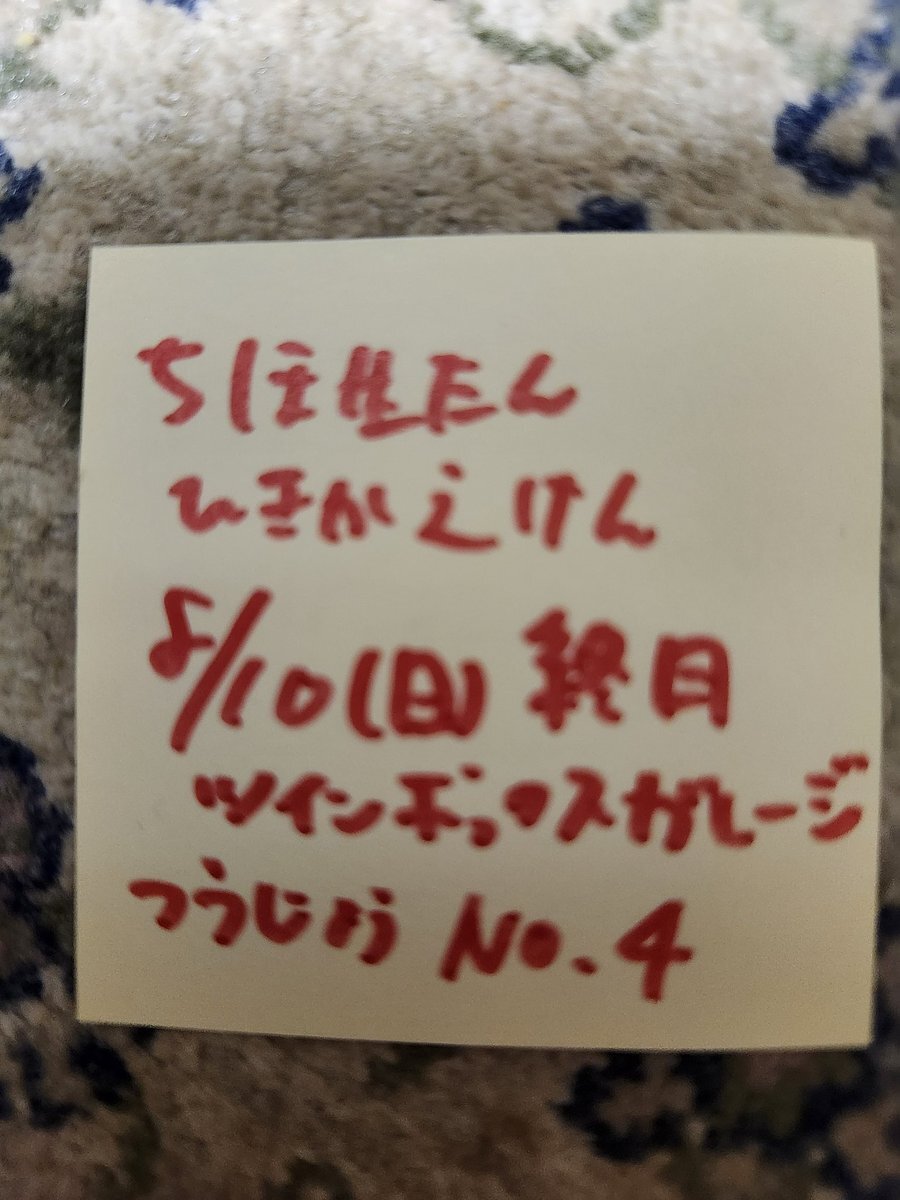 ちほ生たん
ひきかえけん
8/10(日) 終日
ツインボックスガレージ
つうじょう No.4